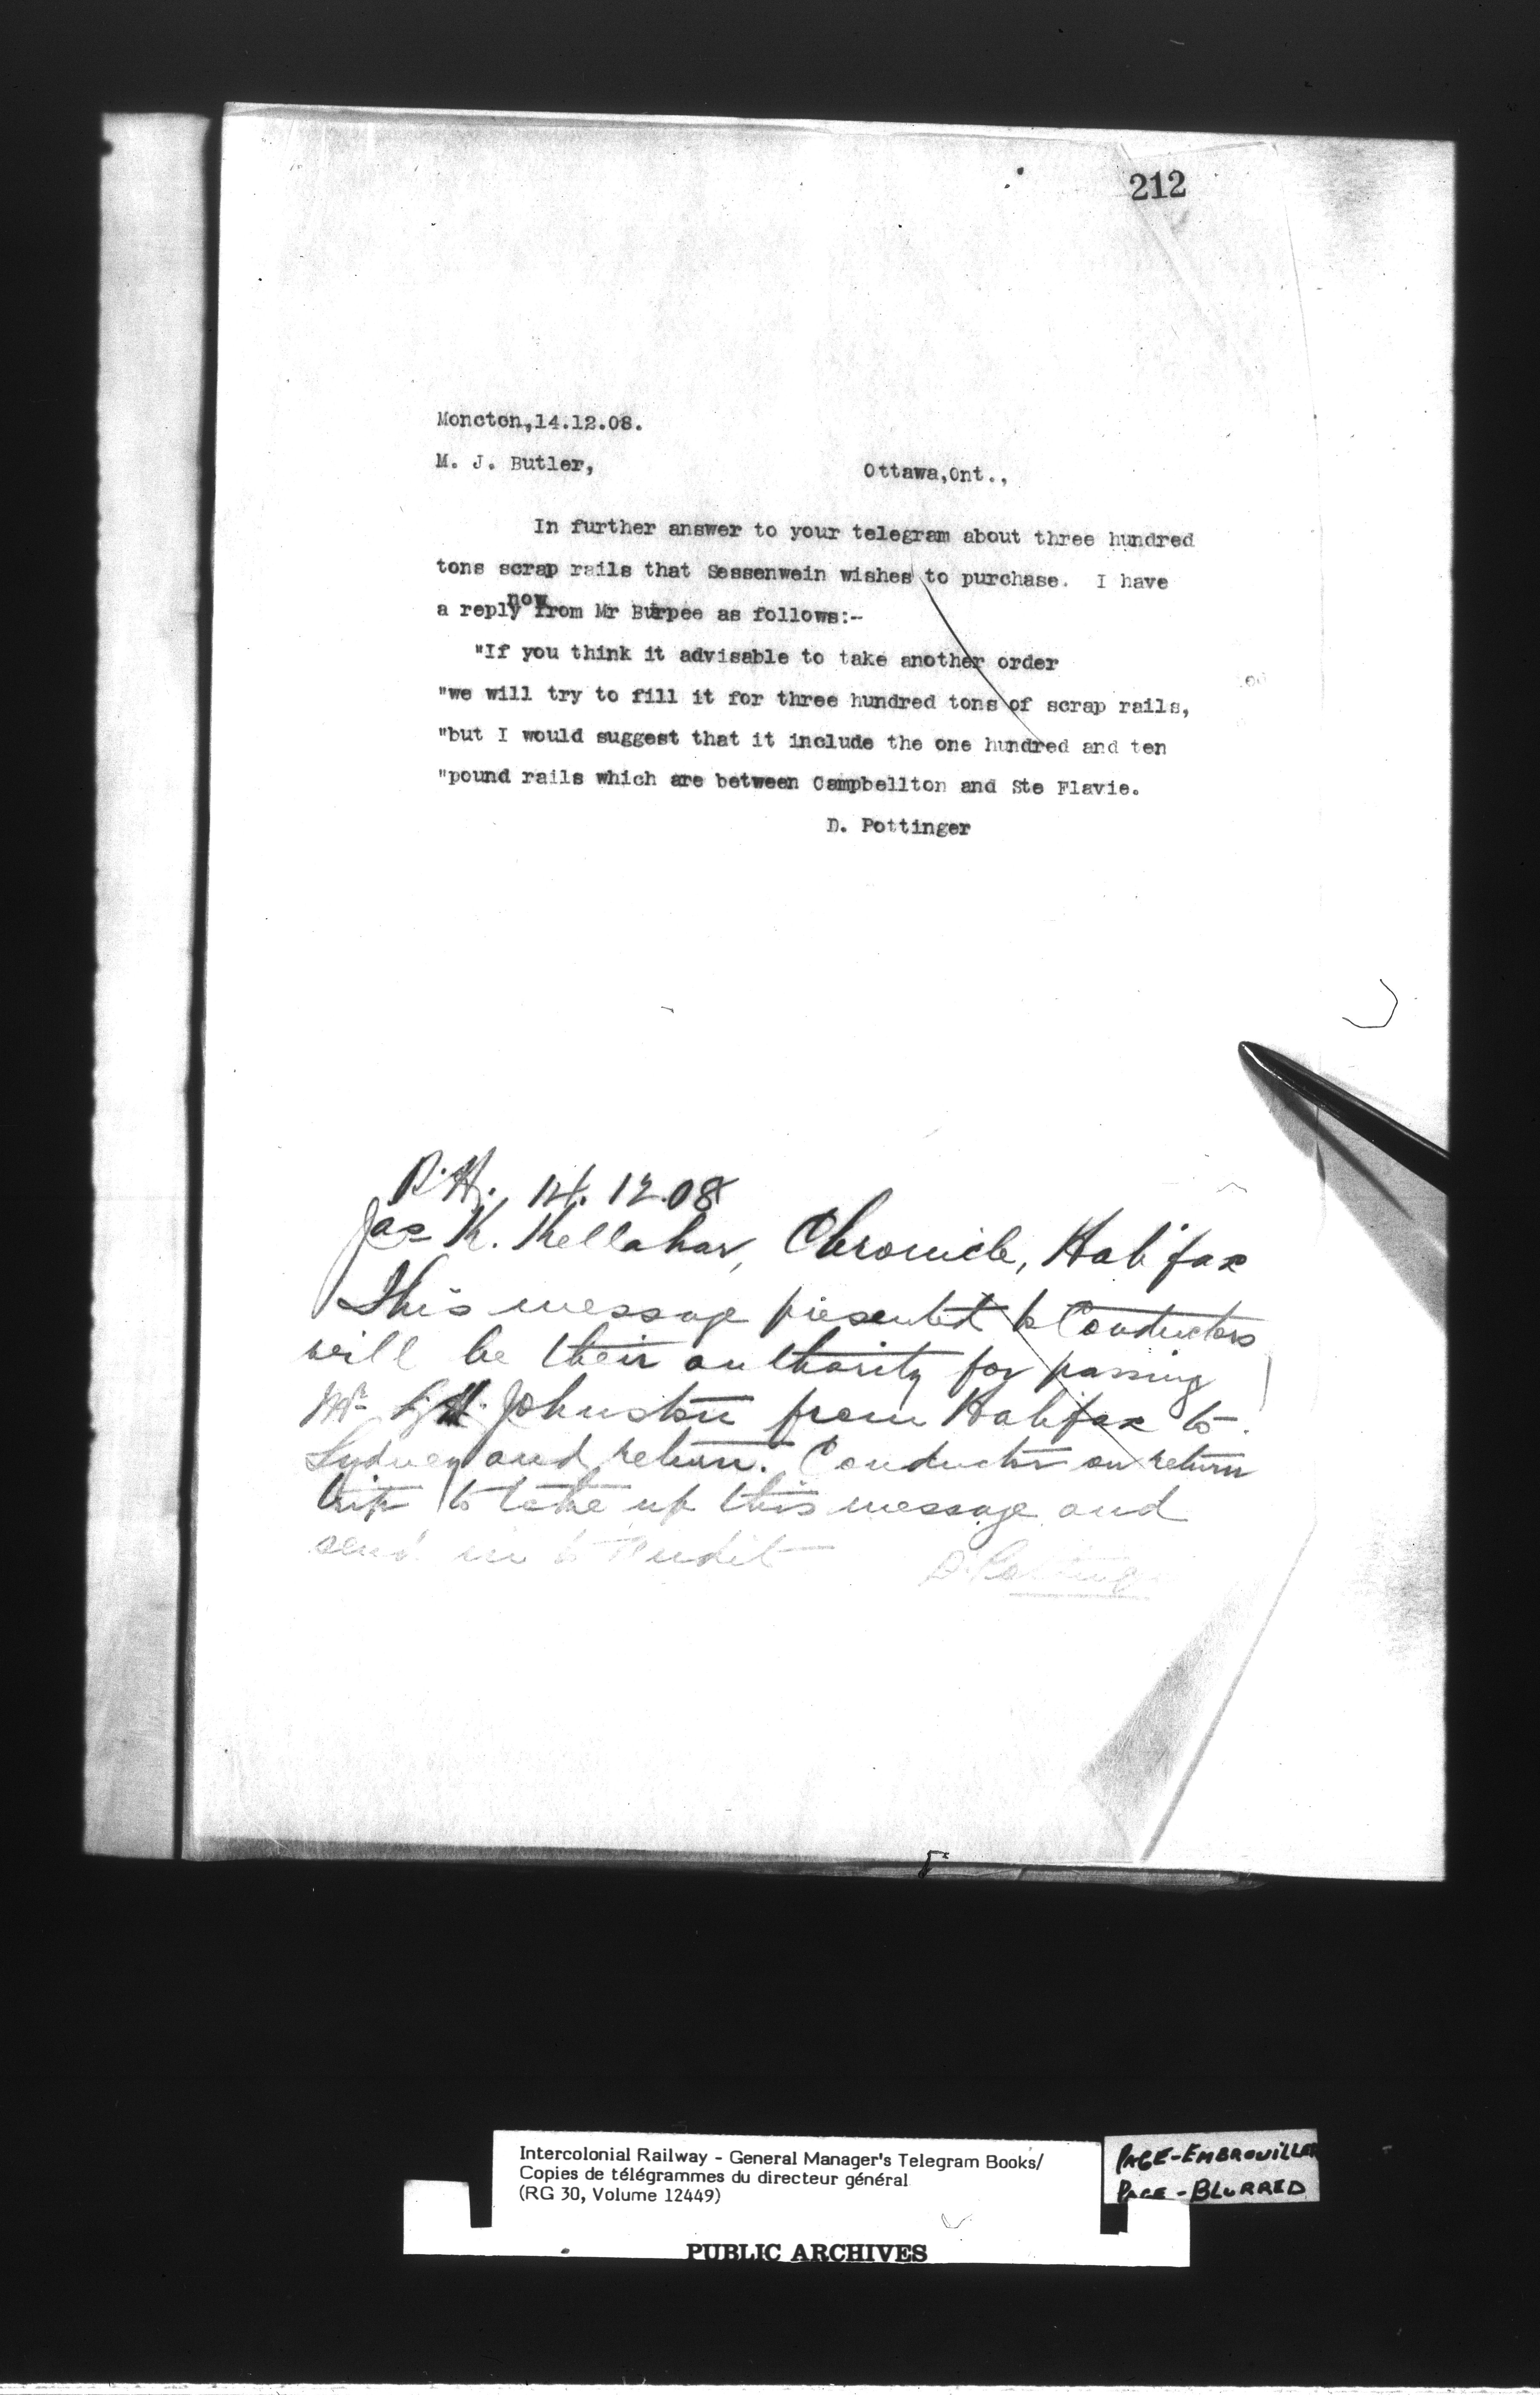 212
Moncton,14.12.08.
M. J. Butler, Ottawa,Ont.,
In further answer to your telegram about three hundred
tons scrap rails that Sessenwein wishes to purchase. I have
now
a reply from Mr Burpee as follows:-
"If you think it advisable to take another order
"we will try to fill it for three hundred tons of scrap rails,
"but I would suggest that it include the one hundred and ten
"pound rails which are between Campbellton and Ste Flavie.
D. Pottinger
14.12.08
Jas K. Chronicle, Halifax
This message presented to Conductors
will be their authority for passing
Mr Johnston from Halifax to
Sydney and return. Conductor on return
trip to take up this message and
send in to Audit
D. Pottinger
Intercolonial Railway - General Manager's Telegram Books/
Copies de télégrammes du directeur général
(RG 30, Volume 12449)
PAGE-EMBROUILLE
PAGE - BLURRED
PUBLIC ARCHIVES